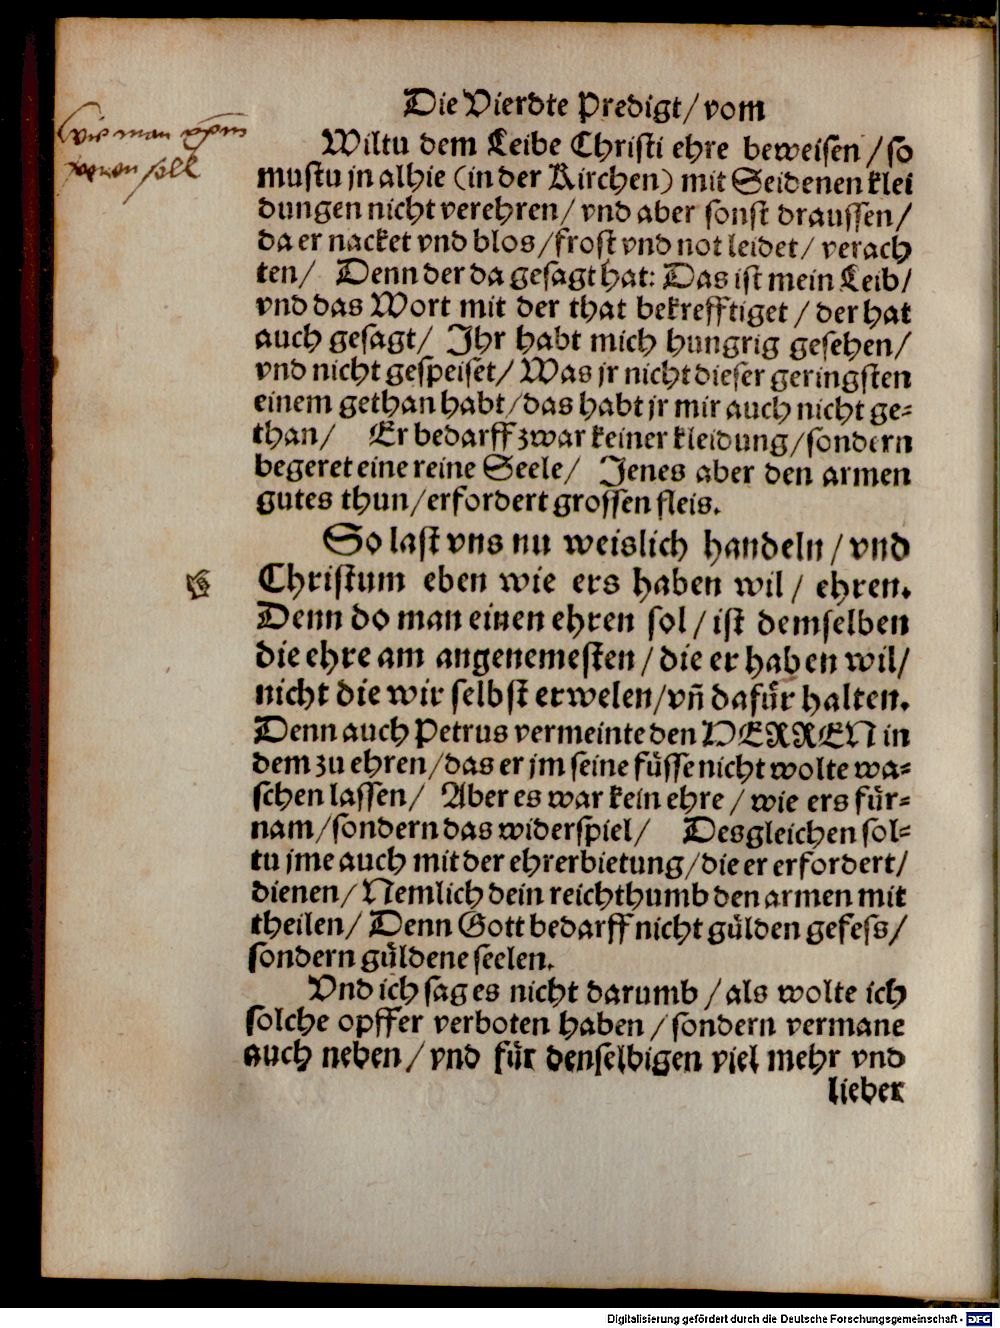 Die Vierdte Predigt/ vom
Wie man xp̄m
ehren soll
Wiltu dem Leibe Christi ehre beweisen / so
mustu jn alhie (in der Kirchen) mit Seidenen klei
dungen nicht verehren/ vnd aber sonst draussen/
da er nacket vnd blos/ frost vnd not leidet/ verach
ten/ Denn der da gesagt hat: Das ist mein Leib/
vnd das Wort mit der that bekrefftiget / der hat
auch gesagt/ Ihr habt mich hungrig gesehen/
vnd nicht gespeiset/ Was jr nicht dieser geringsten
einem gethan habt/ das habt jr mir auch nicht ge-
than/ Er bedarff zwar keiner kleidung/ sondern
begeret eine reine Seele/ Jenes aber den armen
gutes thun/ erfordert grossen fleis.
So last vns nu weislich handeln/ vnd
Christum eben wie ers haben wil/ ehren.
Denn do man einen ehren sol/ ist demselben
die ehre am angenemesten/ die er haben wil/
nicht die wir selbst erwelen/ vñ dafür halten.
Denn auch Petrus vermeinte den HERREN in
dem zu ehren/ das er jm seine füsse nicht wolte wa-
schen lassen/ Aber es war kein ehre / wie ers für-
nam/ sondern das widerspiel/ Desgleichen sol-
tu jme auch mit der ehrerbietung/ die er erfordert/
dienen/ Nemlich dein reichthumb den armen mit
theilen/ Denn Gott bedarff nicht gülden gefess/
sondern güldene seelen.
Vnd ich sag es nicht darumb / als wolte ich
solche opffer verboten haben / sondern vermane
auch neben/ vnd für denselbigen viel mehr vnd
lieber
Digitalisierung gefördert durch die Deutsche Forschungsgemeinschaft - DFG